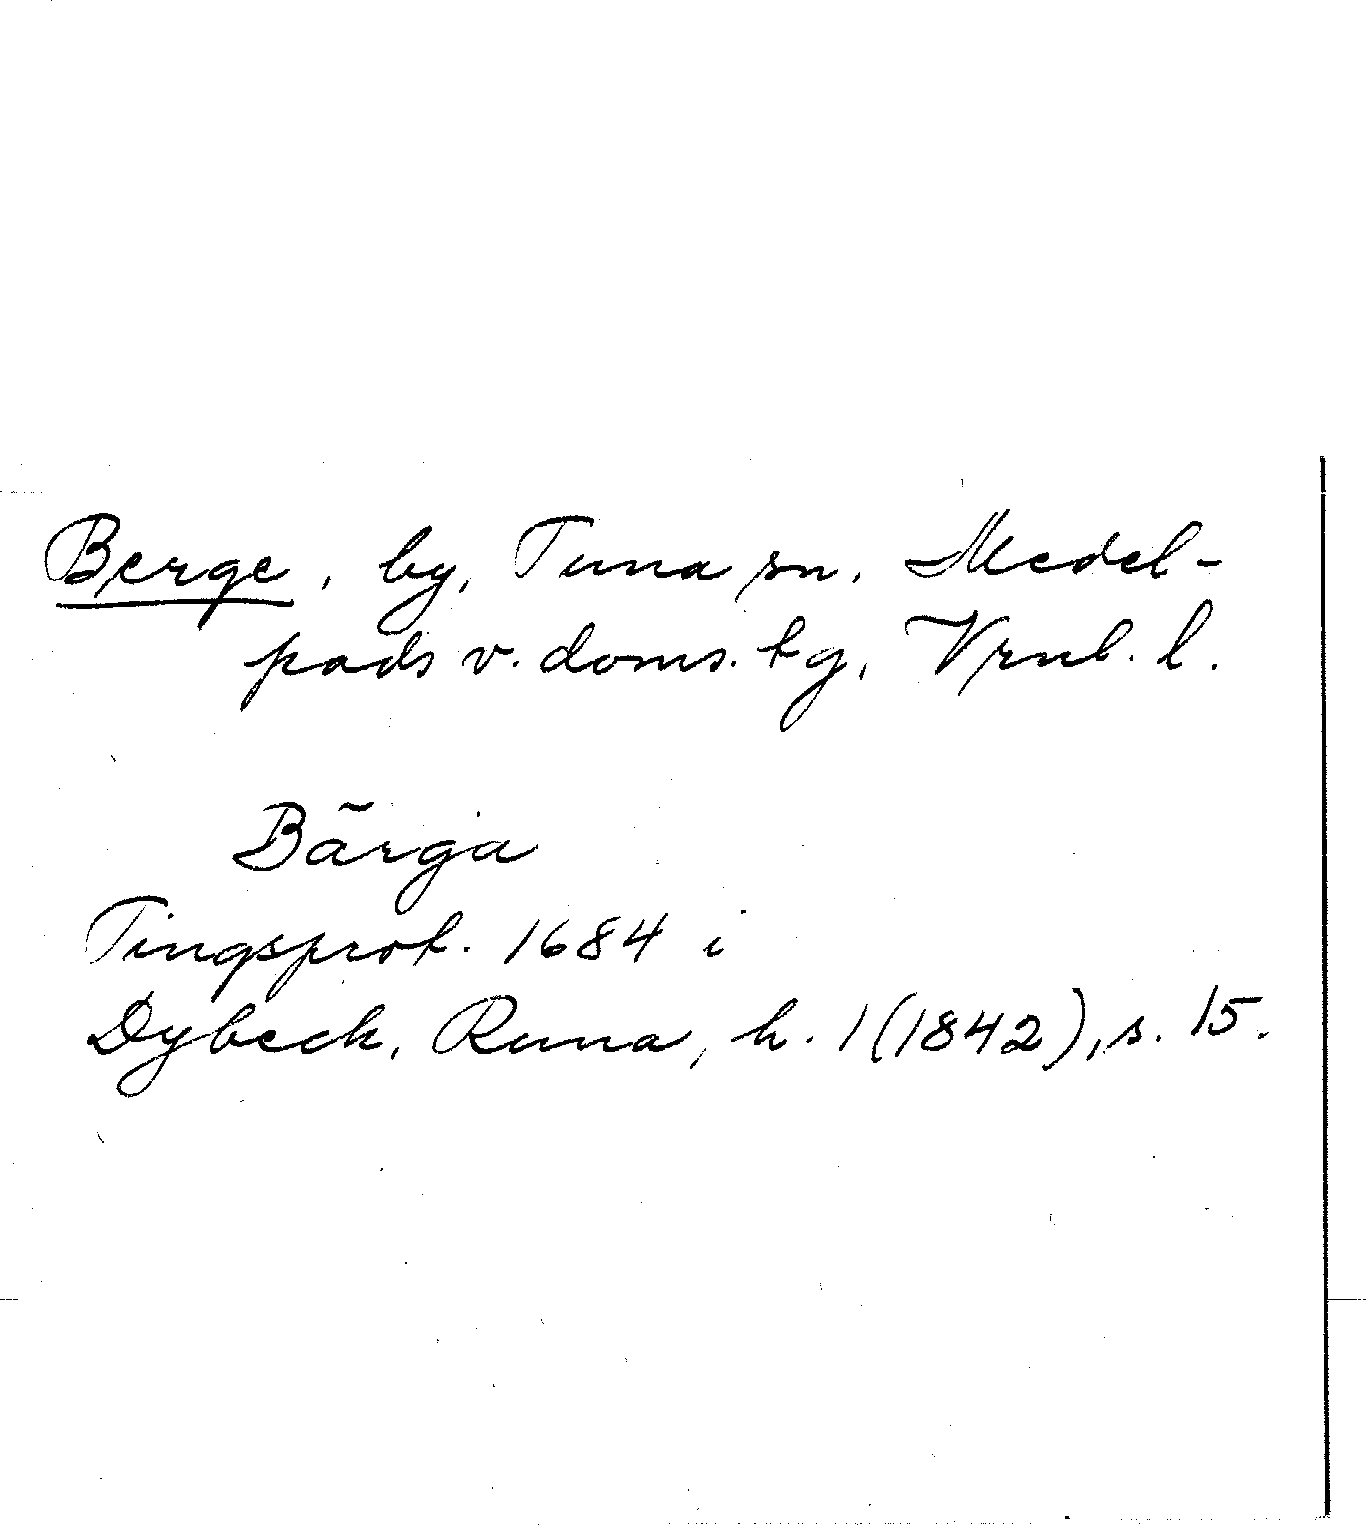 Berge, by, Tuna sn, Medel-
pads v. doms. tg, Vrnl. l.
Bärga
Tingsprot. 1684 i
Dybeck, Runa, h. 1 (1842), s. 15.